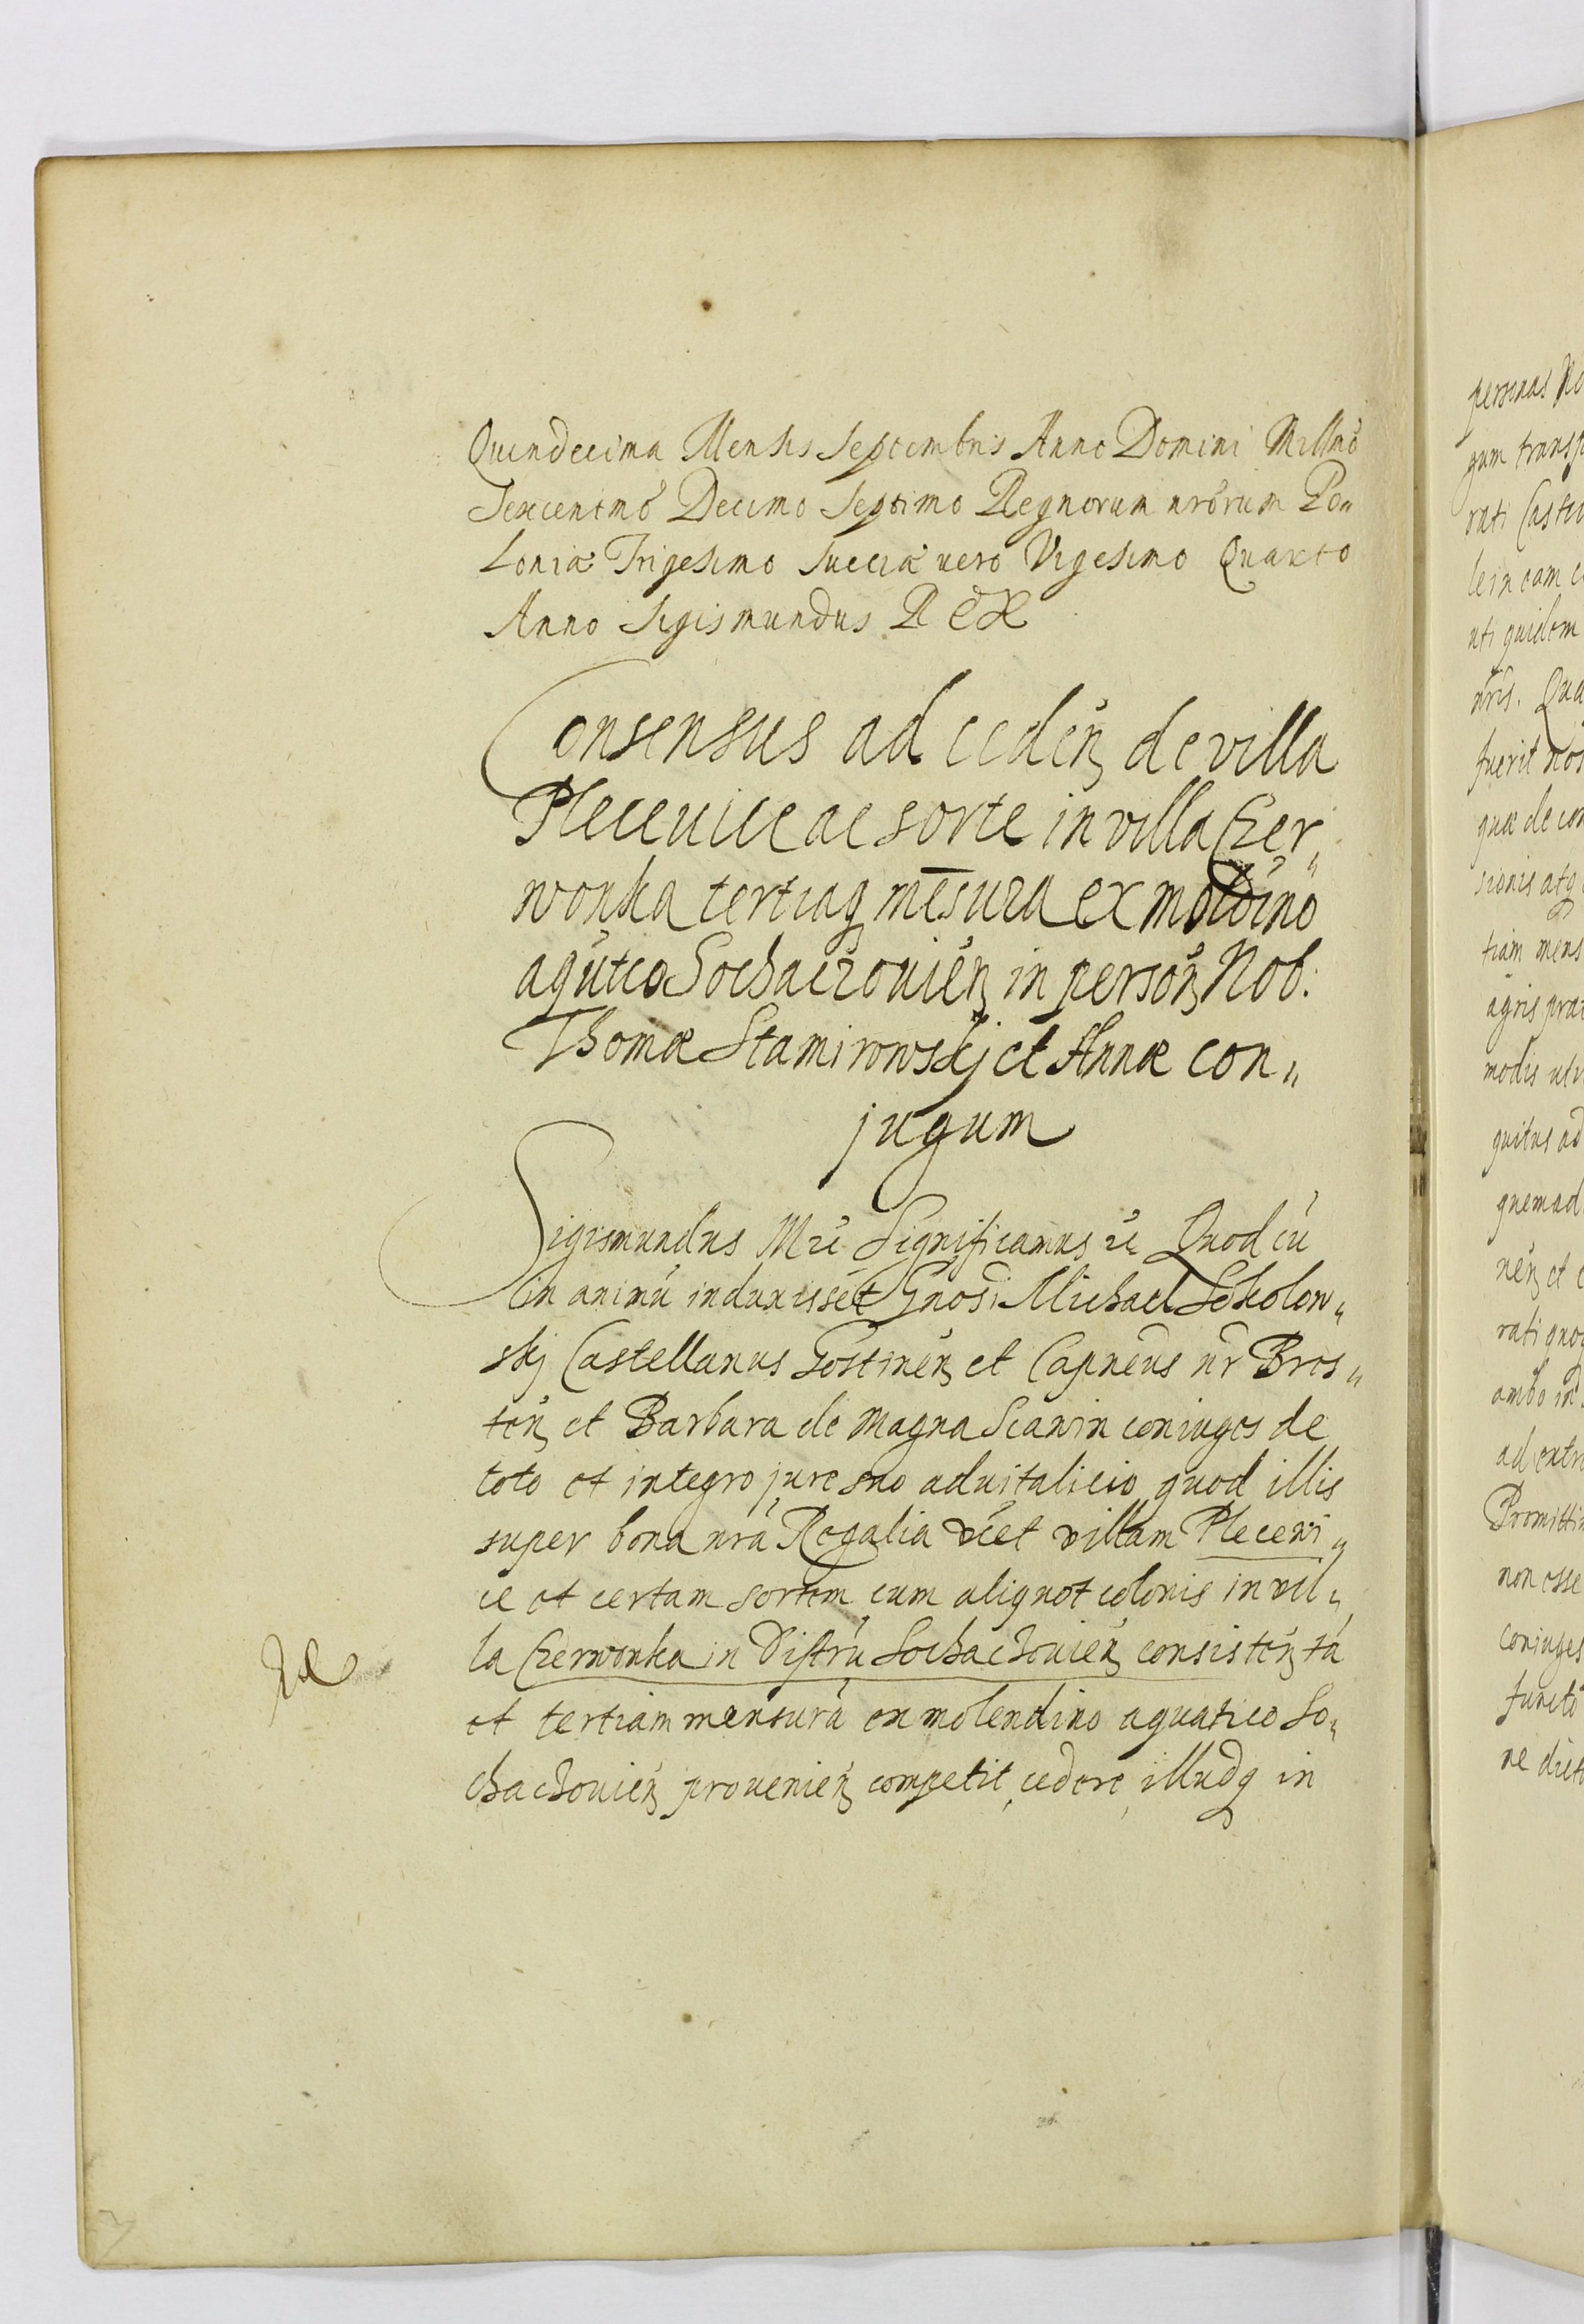 Quindecima Mensis Septembris Anno Domini Millmõ
Sexcentmõ Decimo Septimo Regnorum nrõrum Po„
loniæ Trigesimo Sueciæ vero Vigesimo Quarto
Anno Sigismundus REX
Consensus ad cedeñ de villa
Plecevice ac sorte in villa Czer„
wonka tertiaq mẽsura ex moldino
aqũtco Sochaczovieñ in persoñ Nob:
Thomæ Stamirowskj et Annæ con„
jugum
Sigismundus Significamus Quod cũ
in animũ induxissẽt Gnosi Michael Sokolow„
skj Castellanus Gostineñ et Capneus nr̃ Bres„
teñ et Barbara de Magna Sławin coniuges de
toto et integro jure suo aduitalicio quod illis
super bona nrã Regalia vcẽt villam Plecewi„
ce et certam sortem cum aliquot colonis in vil„
la Czerwonka in Distrũ Sochachouieñ consisteñ tã
et tertiam mensurã ex molendino aquatico So„
chachouieñ provenieñ competit, cedere, illudq in
personas
gum
rati
le in eam
uti quidem
nrĩs. Qua
fuerit
quæ de
sionis atq
tiam mens
agris
modis
quitus ad
quemad
neñ et
rati
ambo in
ad extre
non esse
coniuges
functo
ne